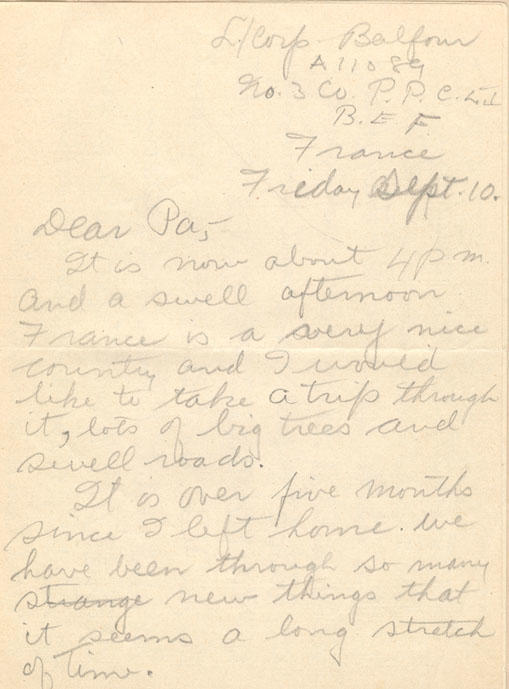 L/Corp Balfour
A11089
No. 3 Co. P. P. C. L I
B. E F.
France
Friday Sept. 10.
Dear Pa,-
It is now about 4 p m.
and a swell afternoon
France is a very nice
country and I would
like to take a trip through
it, lots of big trees and
swell roads.
It is over five months
since I left home. we
have been through so many
strange new things that
it seems a long stretch
of time.